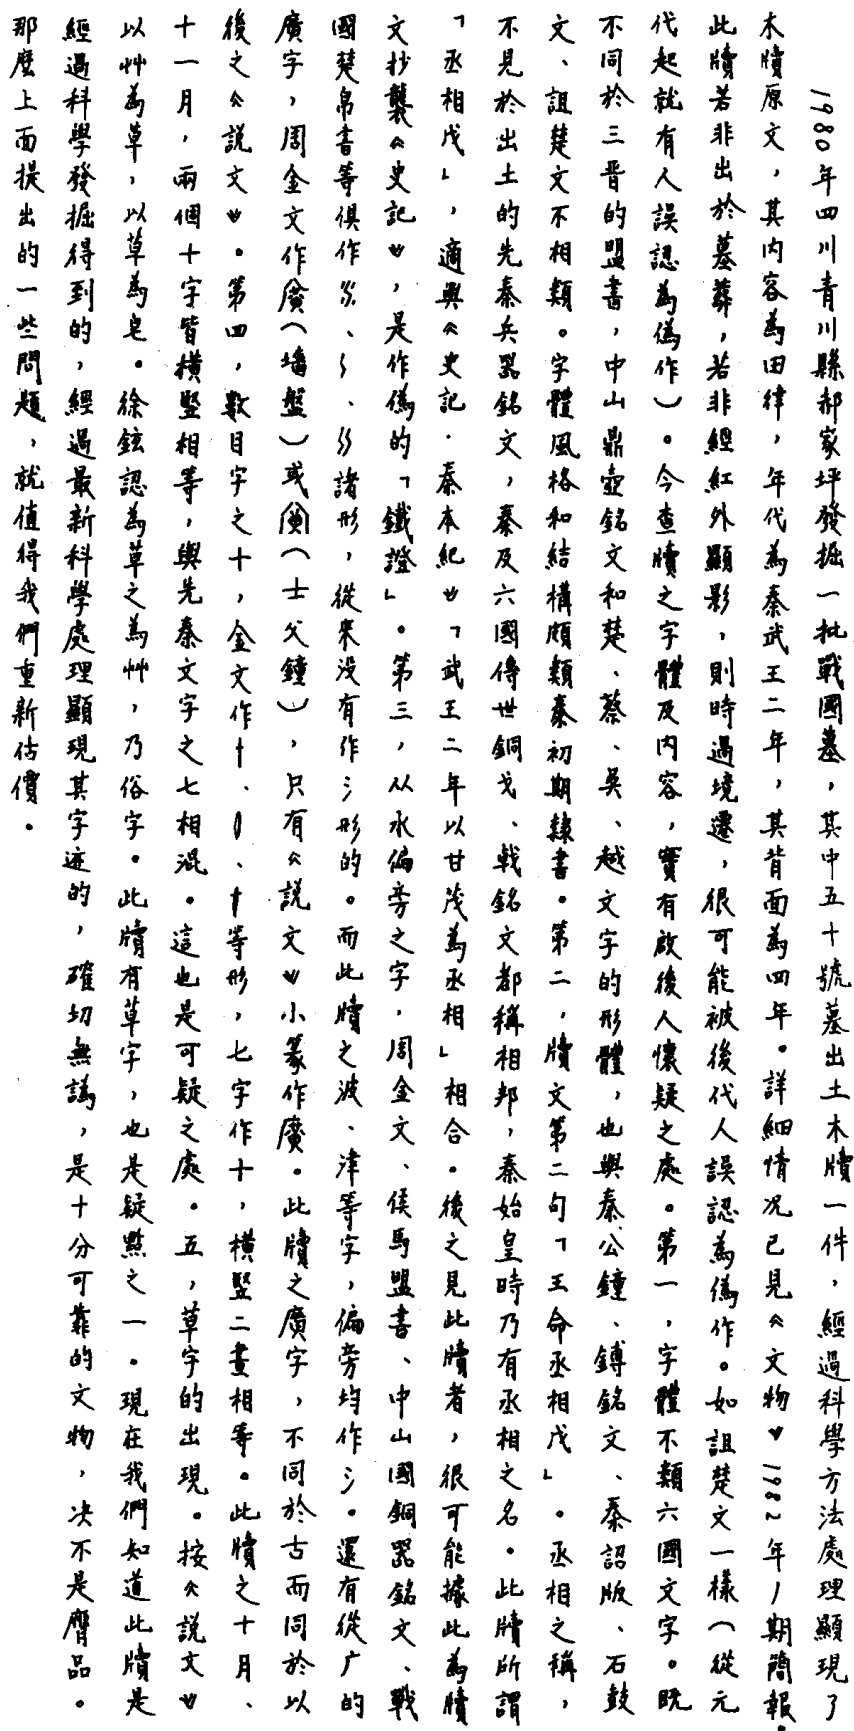 1980年四川青川縣郝家坪發掘一批戰國墓，其中五十號墓出土木牘一件，經過科學方法處理顯現了
木牘原文，其内容為田律，年代為秦武王二年，其背面為四年。詳細情况已見《文物》1982年1期簡報。
此牘若非出於墓葬，若非經紅外顯影，則時過境遷，很可能被後代人誤認為偽作。如詛楚文一樣（從元
代起就有人誤認為偽作）。今查牘之字體及内容，實有啟後人懷疑之處。第一，字體不類六國文字。既
不同於三晋的盟書，中山鼎壺銘文和楚、蔡、吴、越文字的形體，也與秦公鐘、鎛銘文、秦詔版、石鼓
文、詛楚文不相類。字體風格和結構頗類秦初期隸書。第二，牘文第二句「王命丞相戊」。丞相之稱，
不見於出土的先秦兵器銘文，秦及六國傳世銅戈、戟銘文都稱相邦，秦始皇時乃有丞相之名。此牘所謂
「丞相戊」，適與《史記·秦本紀》「武王二年以甘茂為丞相」相合。後之見此牘者，很可能據此為牘
文抄襲《史記》，是作偽的「鐵證」。第三，从水偏旁之字，周金文、侯馬盟書、中山國銅器銘文、戰
國楚帛書等俱作、、諸形，從來没有作氵形的。而此牘之波、津等字，偏旁均作氵。還有從广的
廣字，周金文作（墻盤）或（士父鐘），只有《說文》小篆作廣。此牘之廣字，不同於古而同於以
後之《說文》。第四，數目字之十，金文作、、等形，七字作十，横豎二畫相等。此牘之十月、
十一月，兩個十字皆横豎相等，與先秦文字之七相混。這也是可疑之處。五，草字的出現。按《說文》
以艸為草，以草為皂。徐鉉認為草之為艸，乃俗字。此牘有草字，也是疑點之一。現在我們知道此牘是
經過科學發掘得到的，經過最新科學處理顯現其字迹的，確切無譌，是十分可靠的文物，决不是贋品。
那麼上面提出的一些問題，就值得我們重新估價。